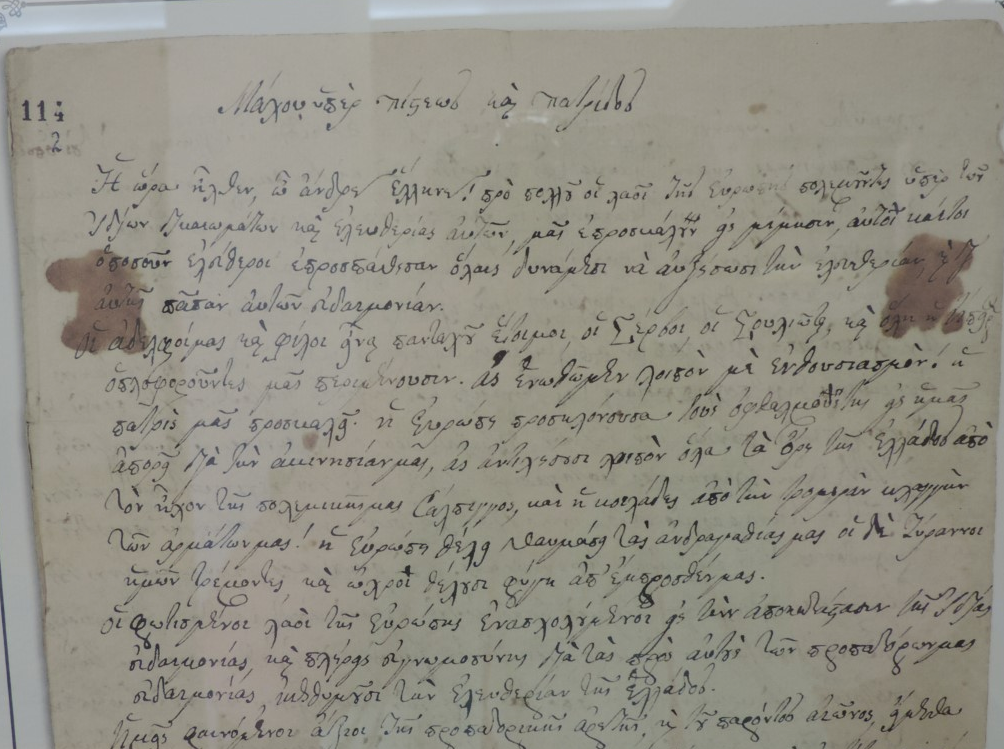 114
2
Μάχου ὑπὲρ πίστεως καὶ πατρίδος
Ἡ ὥρα ἦλθεν, ὦ ἄνδρες Ἕλληνες! πρὸ πολλοῦ οἱ λαοὶ τῆς Εὐρώπης πολεμοῦντες ὑπὲρ τῶν
ἰδίων δικαιωμάτων καὶ ἐλευθερίας αὐτῶν, μᾶς ἐπροσκαλοῦν εἰς μίμησιν, αὐτοὶ καίτοι
ὁπωσοῦν ἐλεύθεροι ἐπροσπάθησαν ὅλαις δυνάμεσι νὰ αὐξήσωσι τὴν ἐλευθερίαν, καὶ δι'
αὐτῆς πᾶσαν αὐτῶν εὐδαιμονίαν.
Οἱ ἀδελφοί μας καὶ φίλοι εἶναι πανταχοῦ ἕτοιμοι, οἱ Σέρβοι, οἱ Σουλιῶται, καὶ ὅλη ἡ Ἤπειρος
ὁπλοφοροῦντες μᾶς περιμένουσιν. ἂς ἑνωθῶμεν λοιπὸν μὲ ἐνθουσιασμὸν! ἡ
πατρὶς μᾶς προσκαλεῖ. ἡ Εὐρώπη προσηλόνουσα τοὺς ὀφθαλμούς της εἰς ἡμᾶς
ἀπορεῖ διὰ τὴν ἀκινησίαν μας, ἂς ἀντηχήσωσι λοιπὸν ὅλα τὰ ὄρη τῆς Ἑλλάδος ἀπὸ
τὸν ἦχον τῆς πολεμικῆς μας σάλπιγγος, καὶ ἡ κοιλάδες ἀπὸ τὴν τρομερὰν κλαγγὴν
τῶν ἁρμάτων μας! ἡ Εὐρώπη θέλει θαυμάση τὰς ἀνδραγαθίας μας οἱ δὲ τύραννοι
ἡμῶν τρέμοντες καὶ ὠχροὶ θέλουσι φύγη ἀπ' ἔμπροσθέν μας.
Οἱ φωτισμένοι λαοὶ τῆς Εὐρώπης ἐνασχολούμενοι εἰς τὴν ἀποκατάστασιν τῆς ἰδίας
εὐδαιμονίας, καὶ πλήρεις εὐγνωμοσύνης διὰ τὰς πρὸς αὐτοὺς τῶν προπατόρων μας
εὐδαιμονίας, ἐπιθυμοῦσι τὴν ἐλευθερίαν τῆς Ἑλλάδος.
Ἡμεῖς φαινόμενοι ἄξιοι τῆς προπατορικῆς ἀρετῆς, καὶ τοῦ παρόντος αἰῶνος, εἴμεθα